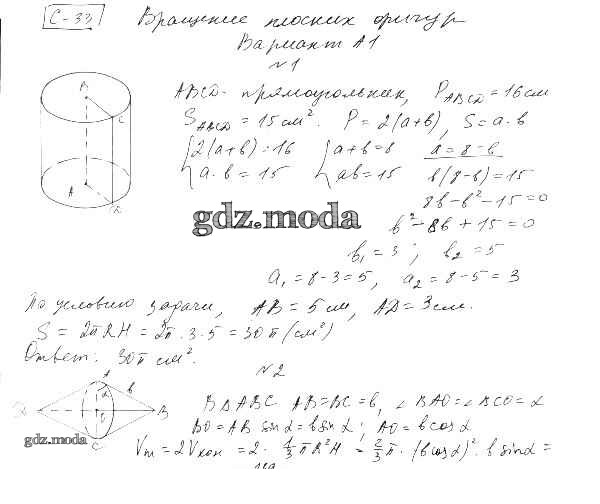 С-33 Вращение плоских фигур
Вариант А1
№1
ABCD - прямоугольник, P_ABCD = 16 см
S_ABCD = 15 см². P = 2(a+b), S = a·b
{2(a+b) = 16 {a+b = 8 a = 8-b
{a·b = 15 {ab = 15 b(8-b) = 15
8b - b² - 15 = 0
b² - 8b + 15 = 0
b₁ = 3; b₂ = 5
a₁ = 8-3 = 5, a₂ = 8-5 = 3
По условию задачи, AB = 5 см, AD = 3 см.
S = 2πRH = 2π·3·5 = 30π (см²)
Ответ. 30π см².
№2
В ΔABC AB=BC=b, ∠BAO=∠BCO=α
BO = AB sinα = b sinα; AO = b cosα
Vт = 2Vкон = 2·1/3πR²H = 2/3π·(b cosα)²·b sinα =
B
C
A
D
A
α
b
D
O
B
C
gdz.moda
gdz.moda